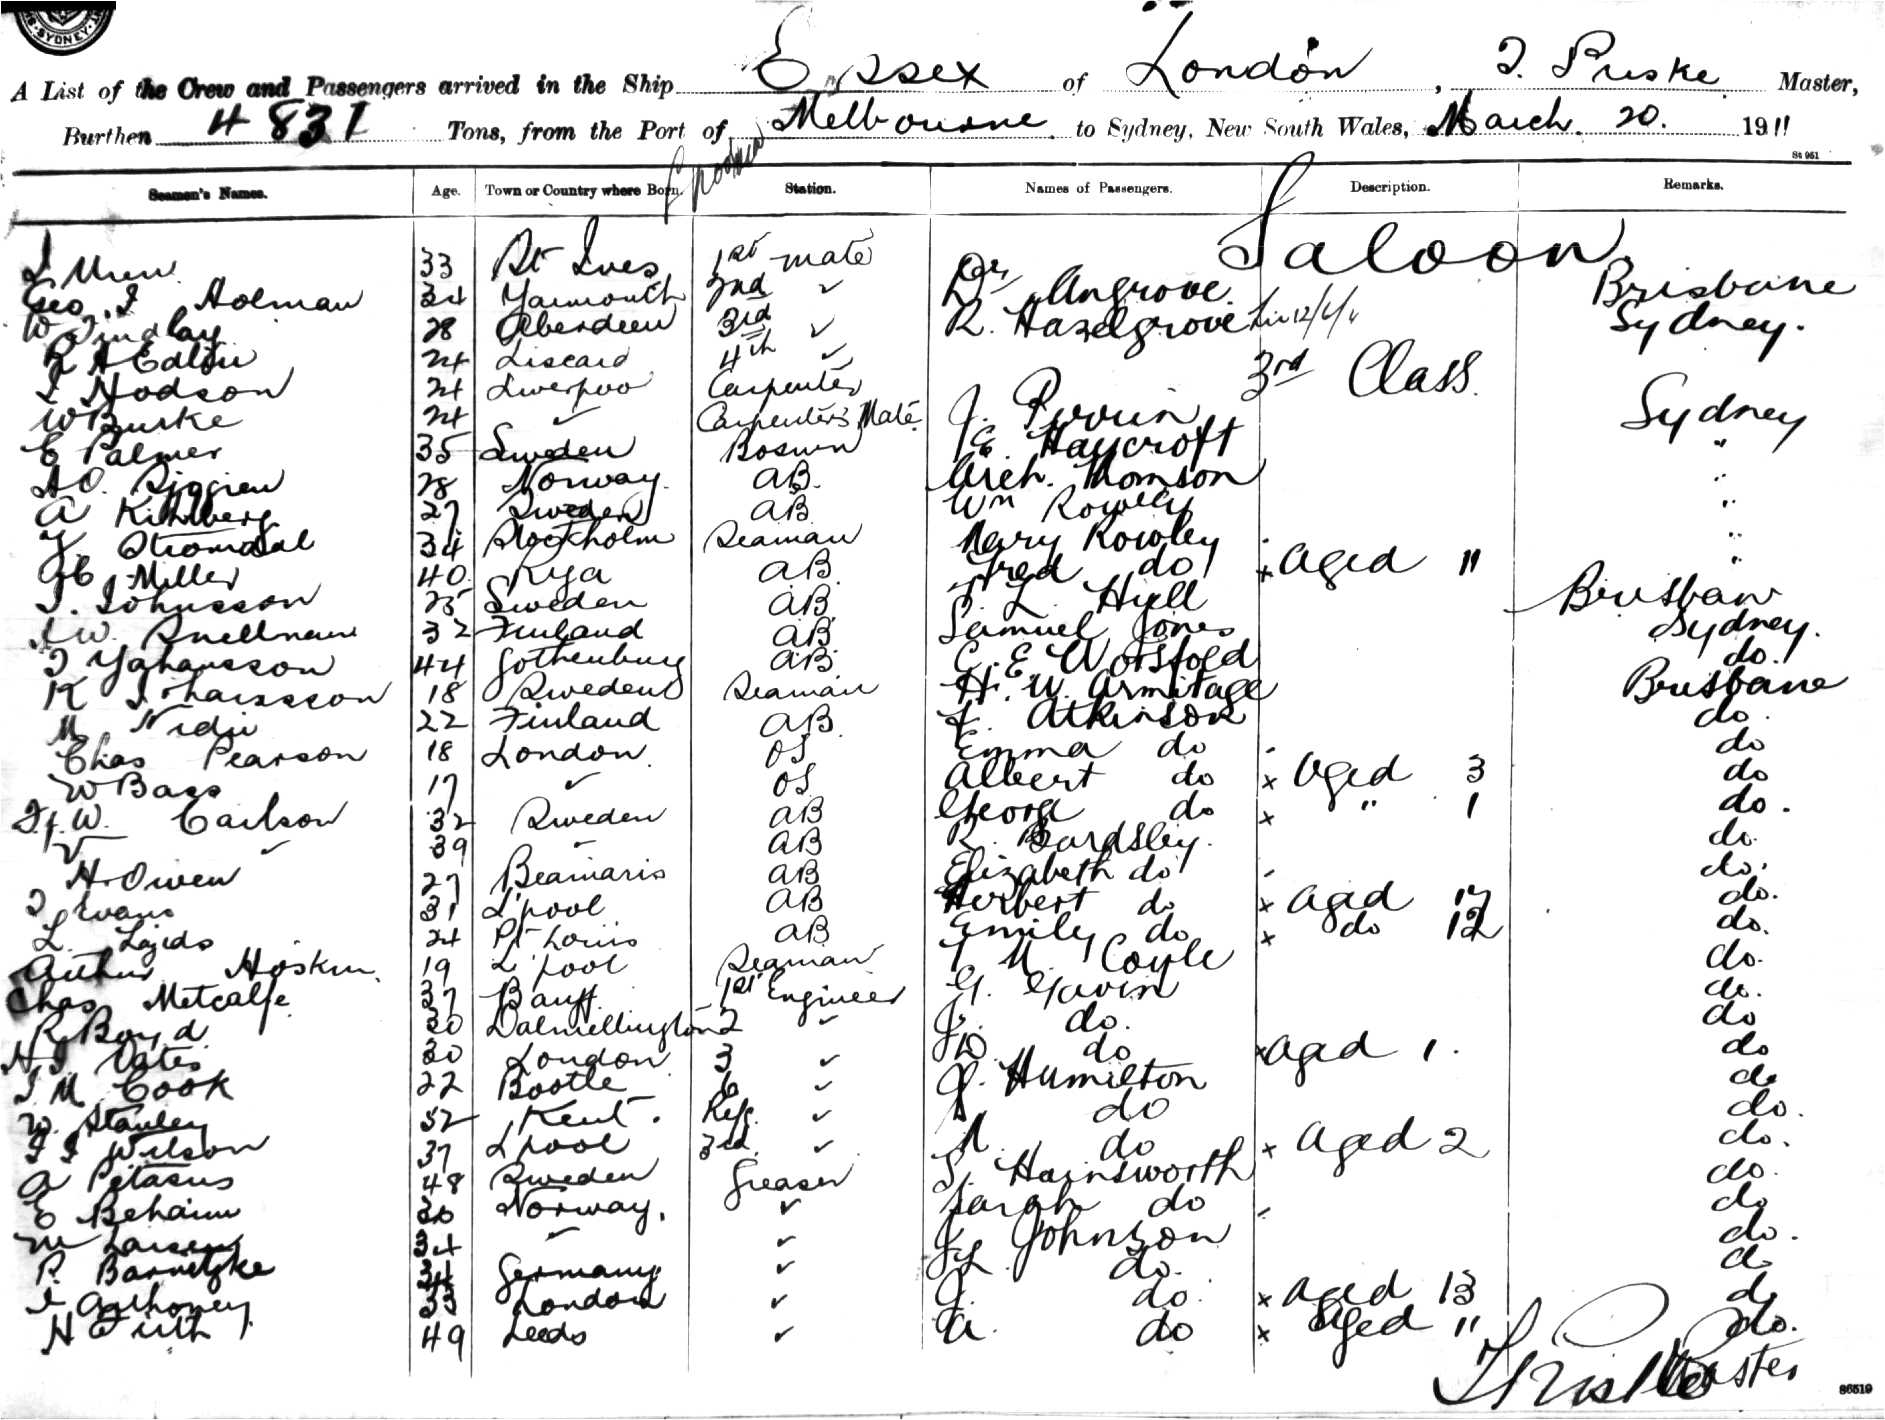 SYDNEY
A List of the Crew and Passengers arrived in the Ship Essex of London, J. Priske Master,
Burthen 4831 Tons, from the Port of Melbourne to Sydney, New South Wales, March 20. 1911
St 951
Seamen's Names. Age. Town or Country where Born. Station. Names of Passengers. Description. Remarks.
Saloon
33 St Ives 1st mate
Geo. J Holman 34 Yarmouth 2nd ✓ Dr Angrove. Brisbane
W Findlay 28 Aberdeen 3rd ✓ R. Hazelgrove Sydney.
24 Liscard 4th ✓
3rd Class.
J Hodson 24 Liverpool Carpenter
W Burke 24 ✓ Carpenter's Mate J. Perrin Sydney
E Palmer 35 Sweden Boswn E. Haycroft "
28 Norway AB. Arch. Thomson "
A Kihlberg 27 Sweden AB Wm Rowley "
Stromdal 34 Stockholm Seaman Mary Rowley "
Miller 40 Rya AB Fred do x Aged 11 "
J. Johnsson 25 Sweden AB L. Hill Brisbane
W. Snellman 32 Finland AB Samuel Jones Sydney.
44 Gothenburg AB C. E. Worsfold do.
K 18 Sweden Seaman H. W. Armitage Brisbane
M 22 Finland AB Atkinson do.
Chas Pearson 18 London OS Emma do do
W Bass 17 ✓ OS Albert do x Aged 3 do
W. Carlson 32 Sweden AB George do x " 1 do.
39 ✓ AB R. Bardsley. do.
H. Owen 27 Beamaris AB Elizabeth do do.
J Evans 31 L'pool AB Herbert do x Aged 17 do.
L. 24 Pt Louis AB Emily do x do 12 do.
Arthur Hoskin 19 L'pool Seaman Coyle do.
Chas Metcalfe 37 Banff 1st Engineer G. Gavin do.
R Boyd 30 Dalmellington 2 ✓ J. do. do
Oates 30 London 3 ✓ D. do x Aged 1. do
J. M. Cook 22 Bootle ✓ J. Hamilton do
W. Stanley 32 Kent. Refg. ✓ do do.
J J Wilson 37 L'pool 3rd ✓ do x Aged 2 do.
A 48 Sweden Greaser Hainsworth do.
E 30 Norway. ✓ Sarah do do
Larsen 34 ✓ ✓ J. Johnson do.
P. Barnetzke 34 Germany ✓ do. do
Anthoney 33 London ✓ J. do. x Aged 13 do
H Firth 49 Leeds ✓ A. do x Aged 11 do.
Master
86519